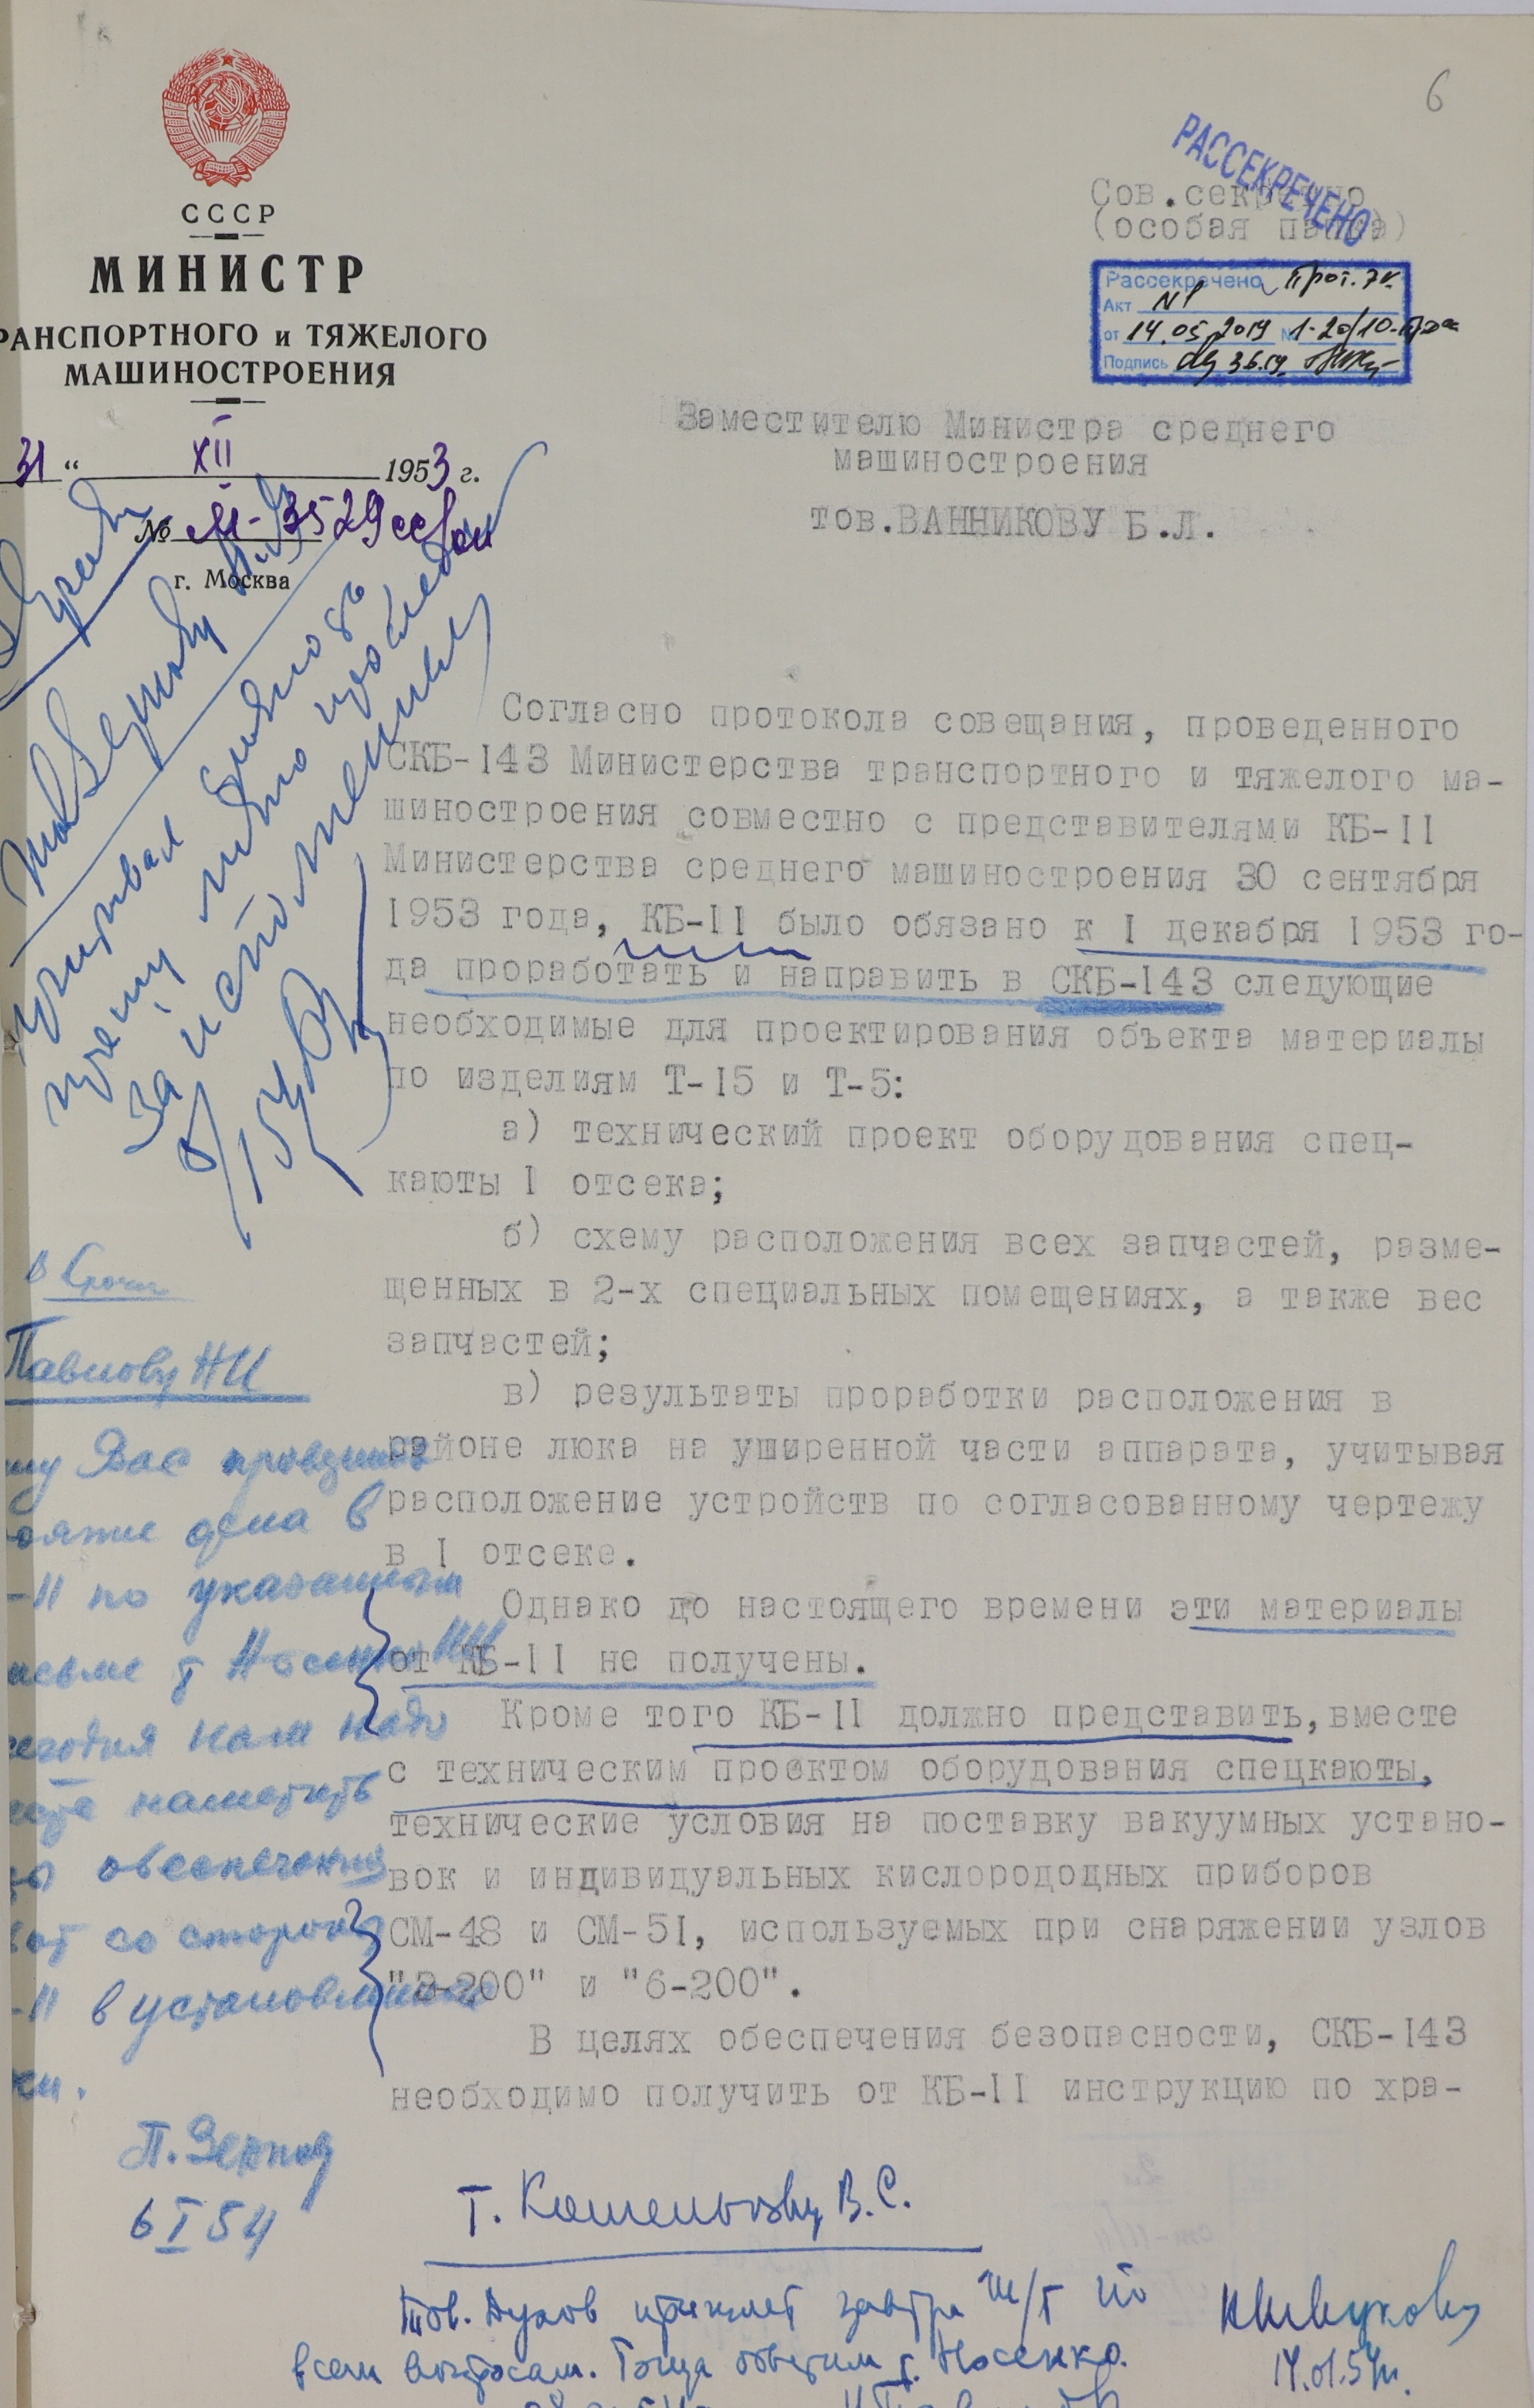 6
СССР
МИНИСТР
РАНСПОРТНОГО и ТЯЖЕЛОГО
МАШИНОСТРОЕНИЯ
31 " XII 1953 г.
№ М-3529сс/оп
г. Москва
РАССЕКРЕЧЕНО
Сов.секретно
(особая папка)
Рассекречено Прот. 7к.
Акт №1
от 14.05.2019 № 1-20/10-
Подпись
Заместителю Министра среднего
машиностроения
тов.ВАННИКОВУ Б.Л.
Согласно протокола совещания, проведенного
СКБ-143 Министерства транспортного и тяжелого ма-
шиностроения совместно с представителями КБ-11
Министерства среднего машиностроения 30 сентября
1953 года, КБ-11 было обязано к 1 декабря 1953 го-
да проработать и направить в СКБ-143 следующие
необходимые для проектирования объекта материалы
по изделиям Т-15 и Т-5:
а) технический проект оборудования спец-
каюты 1 отсека;
б) схему расположения всех запчастей, разме-
щенных в 2-х специальных помещениях, а также вес
запчастей;
в) результаты проработки расположения в
районе люка на уширенной части аппарата, учитывая
расположение устройств по согласованному чертежу
в 1 отсеке.
Однако до настоящего времени эти материалы
от КБ-11 не получены.
Кроме того КБ-11 должно представить, вместе
с техническим проектом оборудования спецкаюты,
технические условия на поставку вакуумных устано-
вок и индивидуальных кислорододных приборов
СМ-48 и СМ-51, используемых при снаряжении узлов
"3-200" и "6-200".
В целях обеспечения безопасности, СКБ-143
необходимо получить от КБ-11 инструкцию по хра-
за исполнением
Павлову НИ
Вас
дела в
-11 по указанным
т Носенко ИИ
надо
наметить
обеспечения
со стороны
-11 в установленные
ки.
П. Зернов
6 I 54
т. В.С.
Тов. Духов примет завтра по
всем вопросам. Тогда ответим т. Носенко.
14.01.54г.